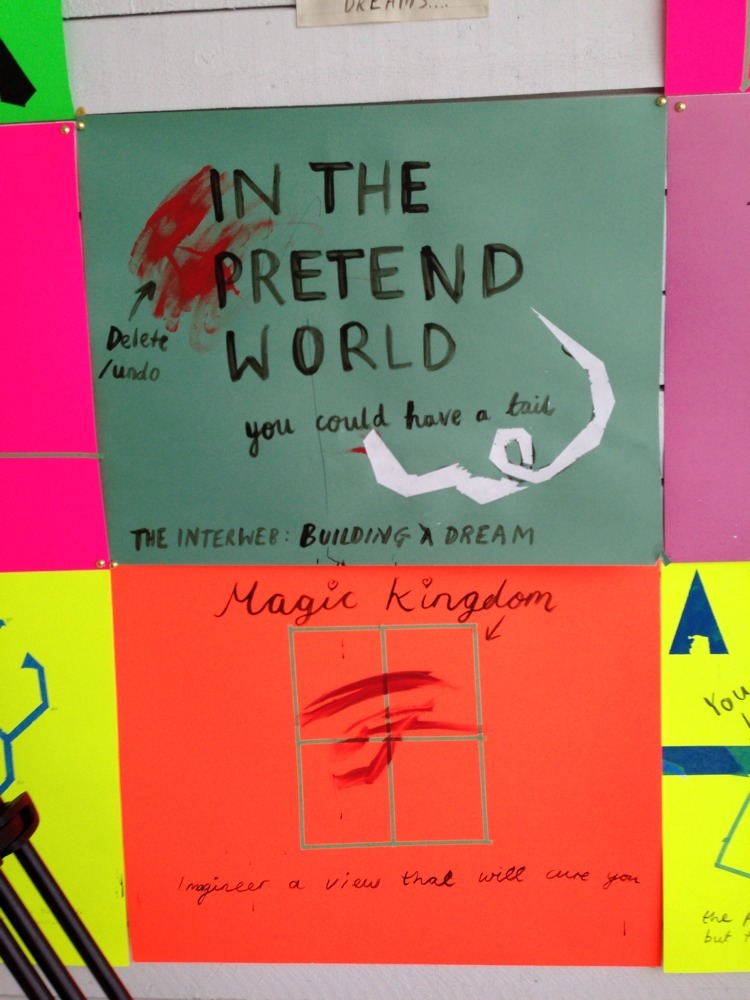 DREAMS....
IN THE
PRETEND
WORLD
Delete
/undo
you could have a tail
THE INTERWEB: BUILDING A DREAM
Magic Kingdom
Imagineer a view that will cure you
You
the
but